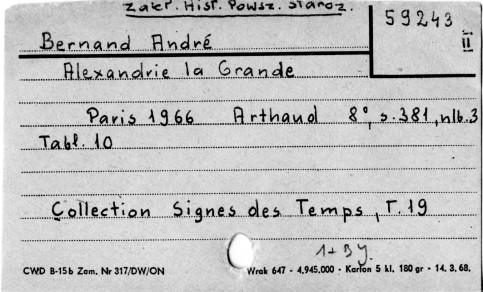 Zakł. Hist. Powsz. Staroż.
59243
II
Bernand André
Alexandrie la Grande
Paris 1966 Arthaud 8°, s.381, nlb.3
Tabl. 10
Collection Signes des Temps, T.19
1+By.
CWD B-15b Zam. Nr 317/DW/ON
Wrak 647 - 4.945.000 - Karton 5 kl. 180 gr - 14. 3. 68.